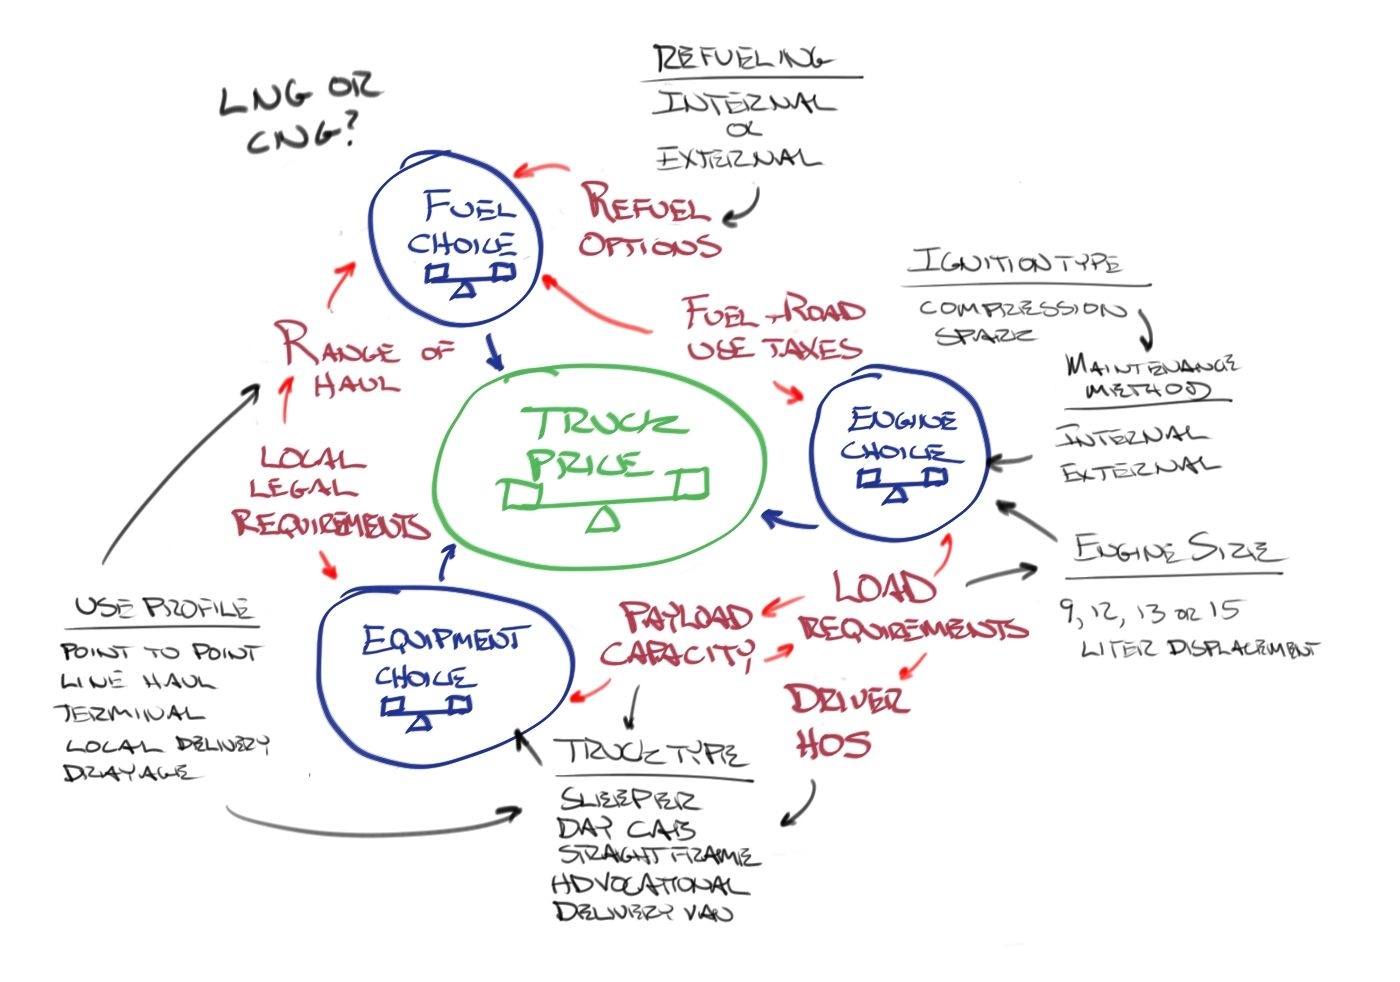 LNG OR
CNG?
REFUELING
INTERNAL
OR
EXTERNAL
FUEL
CHOICE
REFUEL
OPTIONS
IGNITION TYPE
COMPRESSION
SPARK
MAINTENANCE
METHOD
INTERNAL
EXTERNAL
FUEL + ROAD
USE TAXES
RANGE OF
HAUL
TRUCK
PRICE
ENGINE
CHOICE
LOCAL
LEGAL
REQUIREMENTS
ENGINE SIZE
9, 12, 13 OR 15
LITER DISPLACEMENT
LOAD
REQUIREMENTS
PAYLOAD
CAPACITY
DRIVER
HOS
EQUIPMENT
CHOICE
USE PROFILE
POINT TO POINT
LINE HAUL
TERMINAL
LOCAL DELIVERY
DRAYAGE
TRUCK TYPE
SLEEPER
DAY CAB
STRAIGHT FRAME
HD VOCATIONAL
DELIVERY VAN